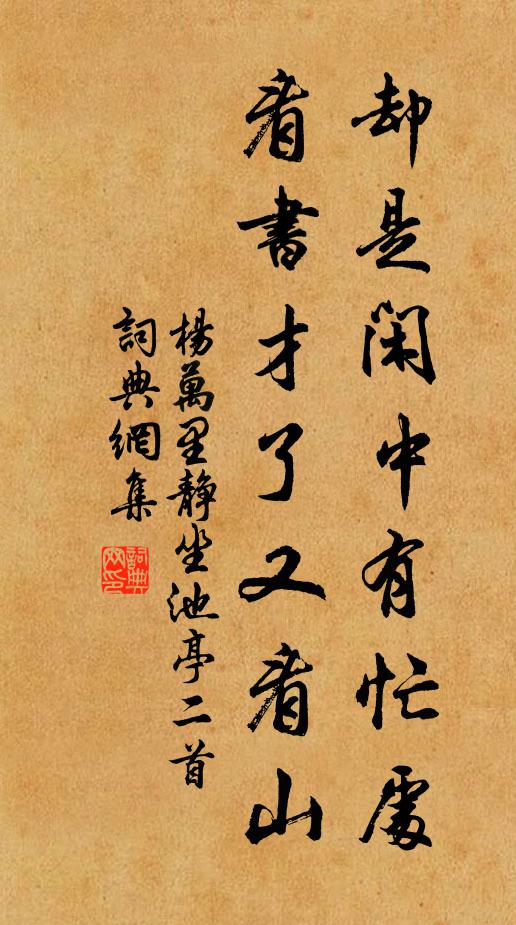 却是閑中有忙處
看書才了又看山
楊萬里静坐池亭二首
詞典網集
詞典網印